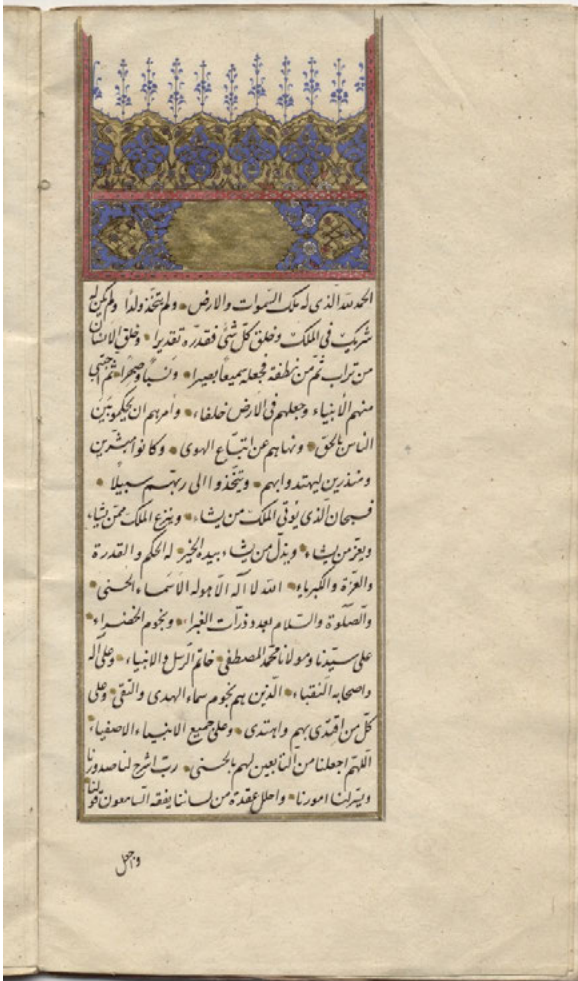 الحمد لله الذى له ملك السموات والارض ولم يتخذ ولدا ولم يكن له
شريك فى الملك وخلق كل شئ فقدره تقديرا وخلق الانسان
من تراب ثم من نطفة فجعله سميعا بصيرا ونسبا وصهرا ثم اجتبى
منهم الأنبياء وجعلهم فى الارض خلفاء وامرهم ان يحكموا بين
الناس بالحق ونهاهم عن اتباع الهوى وكانوا مبشرين
ومنذرين ليهتدوا بهم ويتخذوا الى ربهم سبيلا
فسبحان الذى يؤتى الملك من يشاء وينزع الملك ممن يشاء
ويعز من يشاء ويذل من يشاء بيده الخير له الحكم والقدرة
والعزة والكبرياء الله لا اله الا هو له الاسماء الحسنى
والصلوة والسلام بعدد ذرات الغبراء ونجوم الخضراء
على سيدنا ومولانا محمد المصطفى خاتم الرسل والانبياء وعلى اله
واصحابه النقباء الذين هم نجوم سماء الهدى والتقى وعلى
كل من اقتدى بهم واهتدى وعلى جميع الانبياء الاصفياء
اللهم اجعلنا من التابعين لهم بالحسنى رب اشرح لنا صدورنا
ويسر لنا امورنا واحلل عقدة من لساننا يفقه السامعون قولنا
واجعل